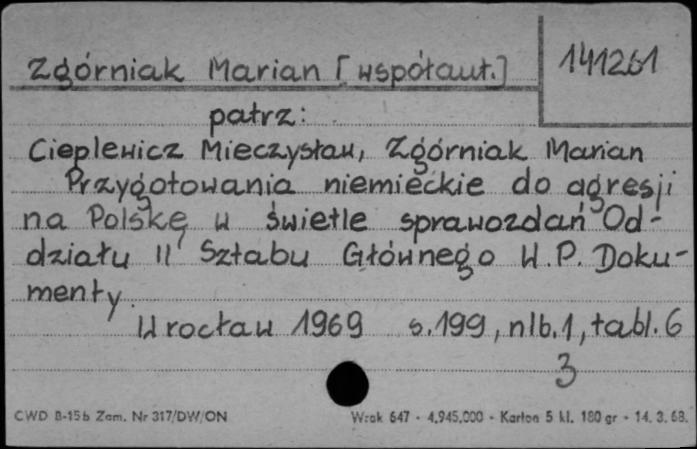 Zgórniak Marian [współaut.]
141261
patrz:
Cieplewicz Mieczysław, Zgórniak Marian
Przygotowania niemieckie do agresji
na Polskę w świetle sprawozdań Od-
działu II Sztabu Głównego W.P. Doku-
menty.
Wrocław 1969 s. 199, nlb. 1, tabl. 6
3
CWD B-15b Zam. Nr 317/DW/ON
Wzak 647 - 4.945.000 - Karton 5 kl. 180 gr - 14. 3. 68.